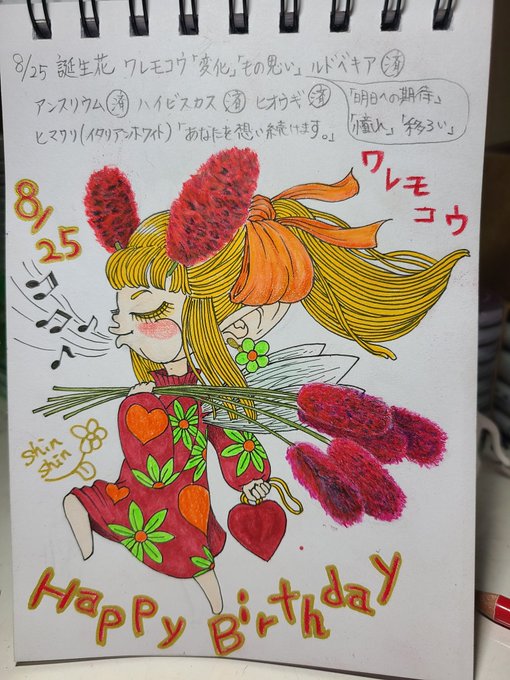 8/25 誕生花 ワレモコウ「変化」「もの思い」 ルドベキア 済
アンスリウム 済 ハイビスカス 済 ヒオウギ 済
ヒマワリ(イタリアンホワイト)「あなたを想い続けます。」
「明日への期待」
「憧れ」「移ろい」
8/25
ワレモ
コウ
shin
shin
Happy Birthday